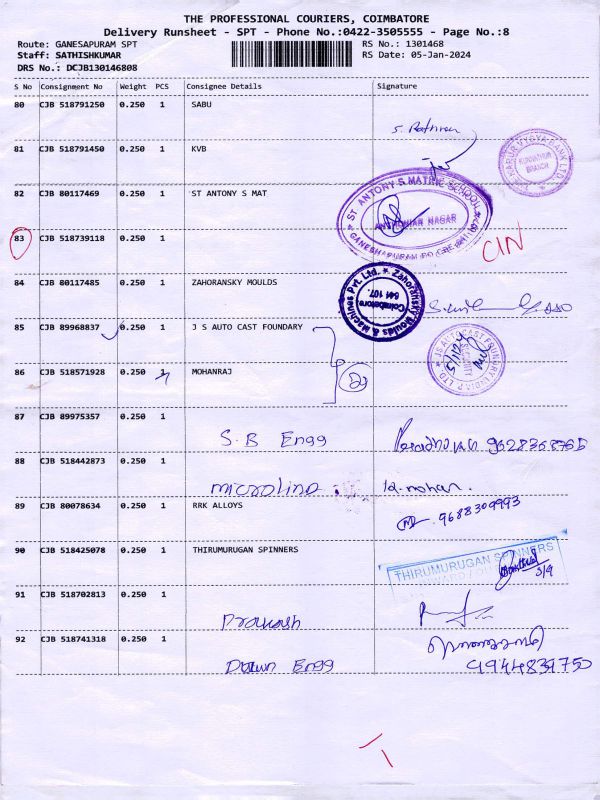 THE PROFESSIONAL COURIERS, COIMBATORE
Delivery Runsheet - SPT - Phone No.:0422-3505555 - Page No.:8
Route: GANESAPURAM SPT
RS No.: 1301468
Staff: SATHISHKUMAR
RS Date: 05-Jan-2024
DRS No.: DCJB130146808
S No Consignment No Weight PCS Consignee Details Signature
80 CJB 518791250 0.250 1 SABU
81 CJB 518791450 0.250 1 KVB
KARUR VYSYA BANK LTD.
BRANCH
82 CJB 80117469 0.250 1 ST ANTONY S MAT
ST ANTONY S MATRIC SCHOOL
83 CJB 518739118 0.250 1
CIN
84 CJB 80117485 0.250 1 ZAHORANSKY MOULDS
Zahoransky Moulds & Machines Pvt. Ltd.
Coimbatore
641 107.
85 CJB 89968837 0.250 1 J S AUTO CAST FOUNDARY
SECURITY
5/1/24
86 CJB 518571928 0.250 1 MOHANRAJ
87 CJB 89975357 0.250 1 S.B Engg
9628368765
88 CJB 518442873 0.250 1
K.mohan.
89 CJB 80078634 0.250 1 RRK ALLOYS
9688309993
90 CJB 518425078 0.250 1 THIRUMURUGAN SPINNERS
THIRUMURUGAN SPINNERS
91 CJB 518702813 0.250 1 Prakash
92 CJB 518741318 0.250 1 Dawn Engg